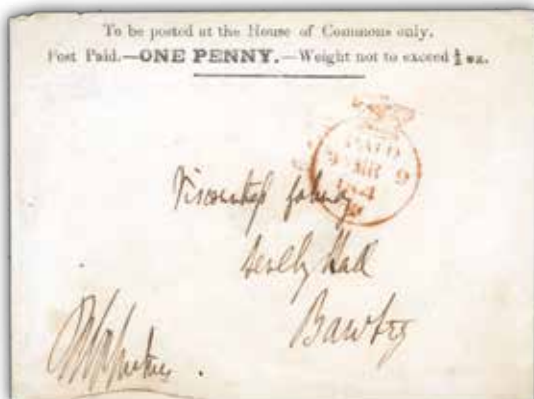 To be posted at the House of Commons only.
Post Paid.—ONE PENNY.—Weight not to exceed ½ oz.
PAID
9 MR 9
Viscountess Galway
Serlby Hall
Bawtry